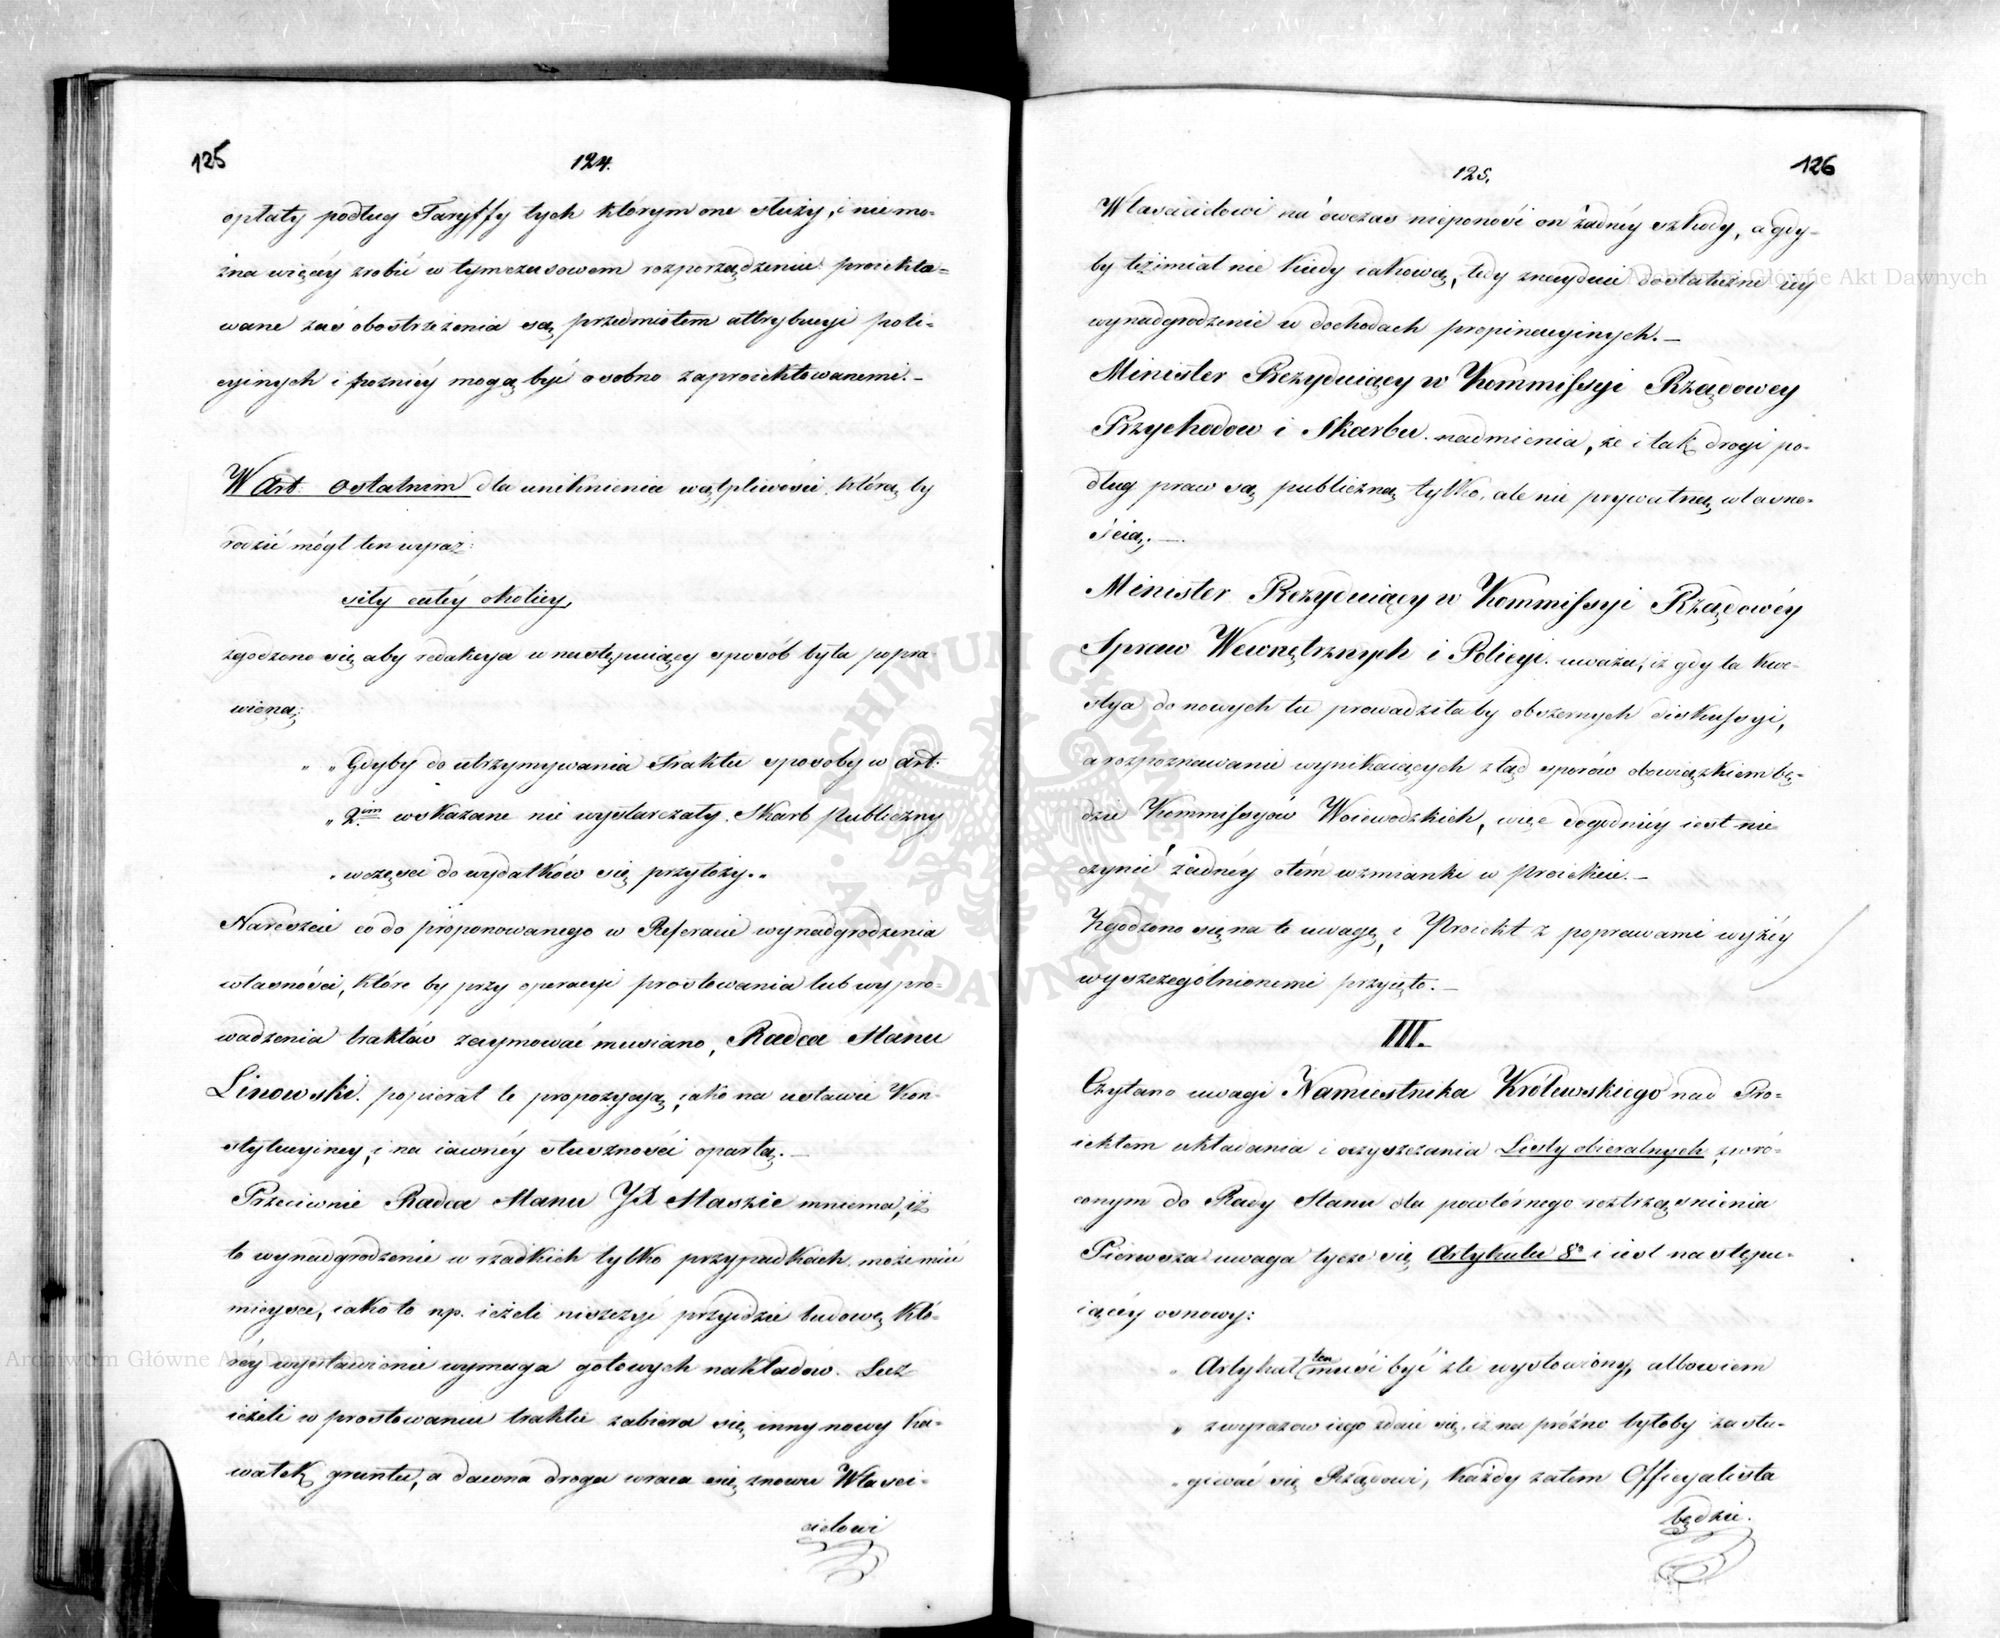 125
124.
opłaty podług Taryffy tych którym one służy, i nie mo-
żna więcéy zrobić w tymczasowem rozporządzeniu: proiekto-
wane zaś obostrzeżenia są przedmiotem attrybucyi poli-
cyinych i pozniéy mogą być osobno zaproiektowanemi.–
W Art: Ostatnim dla uniknienia wątpliwości, którą by
rodzić mógł ten wyraz:
siły całéy okolicy,
zgodzono się aby redakcya w następuiący sposób była popra
wioną:
„ „Gdyby do utrzymywania Traktu sposoby w Art:
„ 2im wskazane nie wystarczały. Skarb Publiczny
„ wczęsci do wydatków się przyłoży.„
Nareszcie co do proponowanego w Referacie wynadgrodzenia
własności, które by przy operacyi prostowania lub wypro-
wadzenia traktów zaymować musiano, Radca Stanu
Linowski. popierał te propozycyą, jako na ustawie Kon-
stytucyiney, i na iawnéy słuszności opartą.–
Przeciwnie Radca Stanu JX Staszic mniema, iż
to wynadgrodzenie w rzadkich tylko przypadkach, może mieć
mieysce, iako to np. ieżeli niszczyć przyidzie budowę, któ-
réy wystawienie wymaga gotowych nakładów. Lecz
ieżeli w prostowaniu traktu zabiera się inny nowy ka-
wałek gruntu, a dawna droga wraca się znowu Własci-
cielowi
126
125.
Właścicielowi na owczas nieponosi on żadnéy szkody, a gdy-
by też miał nie kiedy iakową, tedy znaydzie dostateczne iéy
wynadgrodzenie w dochodach propinacyinych.–
Minister Prezyduiący w Kommissyi Rządowey
Przychodow i Skarbu. nadmienia, że i tak drogi po-
dług praw są publiczną tylko, ale nie prywatną własno-
ścią.–
Minister Prezyduiący w Kommissyi Rządowéy
Spraw Wewnętrznych i Policyi. uważa, iż gdy ta kwe-
stya do nowych tu prowadziłaby obszernych diskussyi,
a rozpoznawanie wynikaiących ztąd sporów obowiązkiem bę-
dzie Kommissyów Woiewodzkich, więc dogodniéy iest nie
czynić żadnéy otém wzmianki w proiekcie.–
Zgodzono się na te uwagę, i Proiekt z poprawami wyżéy
wyszczególnionemi przyięto.–
III.
Czytano uwagi Namiestnika Królewskiego nad Pro-
iektem układania i oczyszczania Listy obieralnych zwró-
conym do Rady Stanu dla powtórnego roztrząśnienia
Pierwsza uwaga tycze się Artykułu 8o i iest następu-
iącéy osnowy:
„ Artykuł ten musi być źle wysłowiony, albowiem
„ z wyrazow iego zdaie się, iż na próżno byłoby zasłu-
„ giwać się Rządowi, każdy zatem Officyalista
będzie.
ARCHIWUM GŁÓWNE AKT DAWNYCH
Archiwum Główne Akt Dawnych
Archiwum Główne Akt Dawnych